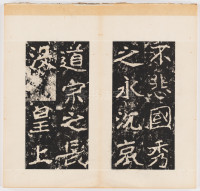 不悲國秀
之永沈哀
道宗之長
沒皇上